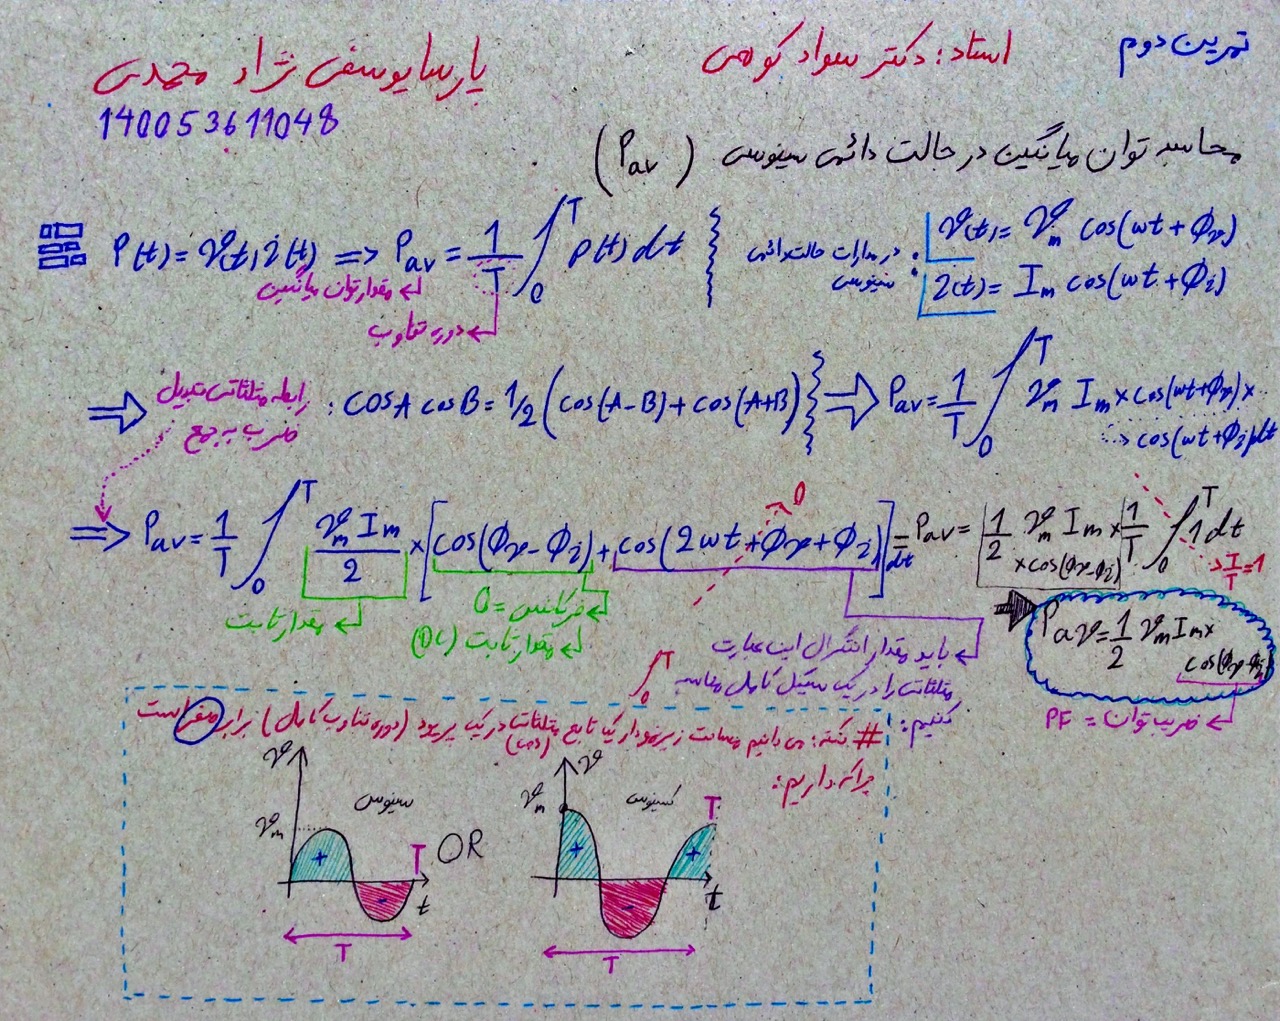 تمرین دوم
استاد: دکتر سواد کوهی
پارسا یوسفی نژاد محمدی
140053611048
محاسبه توان میانگین در حالت دائمی سینوسی (Pav)
P(t) = v(t) . i(t) => Pav = 1/T ∫₀ᵀ p(t) dt
مقدار توان میانگین
دوره تناوب
در مدارات حالت دائمی سینوسی :
v(t) = vm cos(ωt + Φv)
i(t) = Im cos(ωt + Φi)
=> رابطه مثلثاتی تبدیل ضرب به جمع : cosA cosB = 1/2 (cos(A-B) + cos(A+B))
=> Pav = 1/T ∫₀ᵀ vm Im × cos(ωt+Φv) ×
cos(ωt+Φi) dt
=> Pav = 1/T ∫₀ᵀ vm Im / 2 × [cos(Φv - Φi) + cos(2ωt + Φv + Φi)] dt
0
= Pav = 1/2 vm Im × cos(Φv-Φi) 1/T ∫₀ᵀ 1 dt
T/T = 1
مقدار ثابت
فرکانس = 0
مقدار ثابت (DC)
باید مقدار انتگرال این عبارت
مثلثاتی را در یک سیکل کامل محاسبه
کنیم:
∫₀ᵀ
Pav = 1/2 vm Im ×
cos(Φv-Φi)
ضریب توان = PF
# نکته: می دانیم مساحت زیر نمودار یک تابع مثلثاتی در یک پریود (دوره تناوب کامل) برابر صفر است
چرا که داریم:
v
vm
سینوسی
+
-
T
t
T
OR
v
vm
کسینوسی
+
-
+
T
t
T